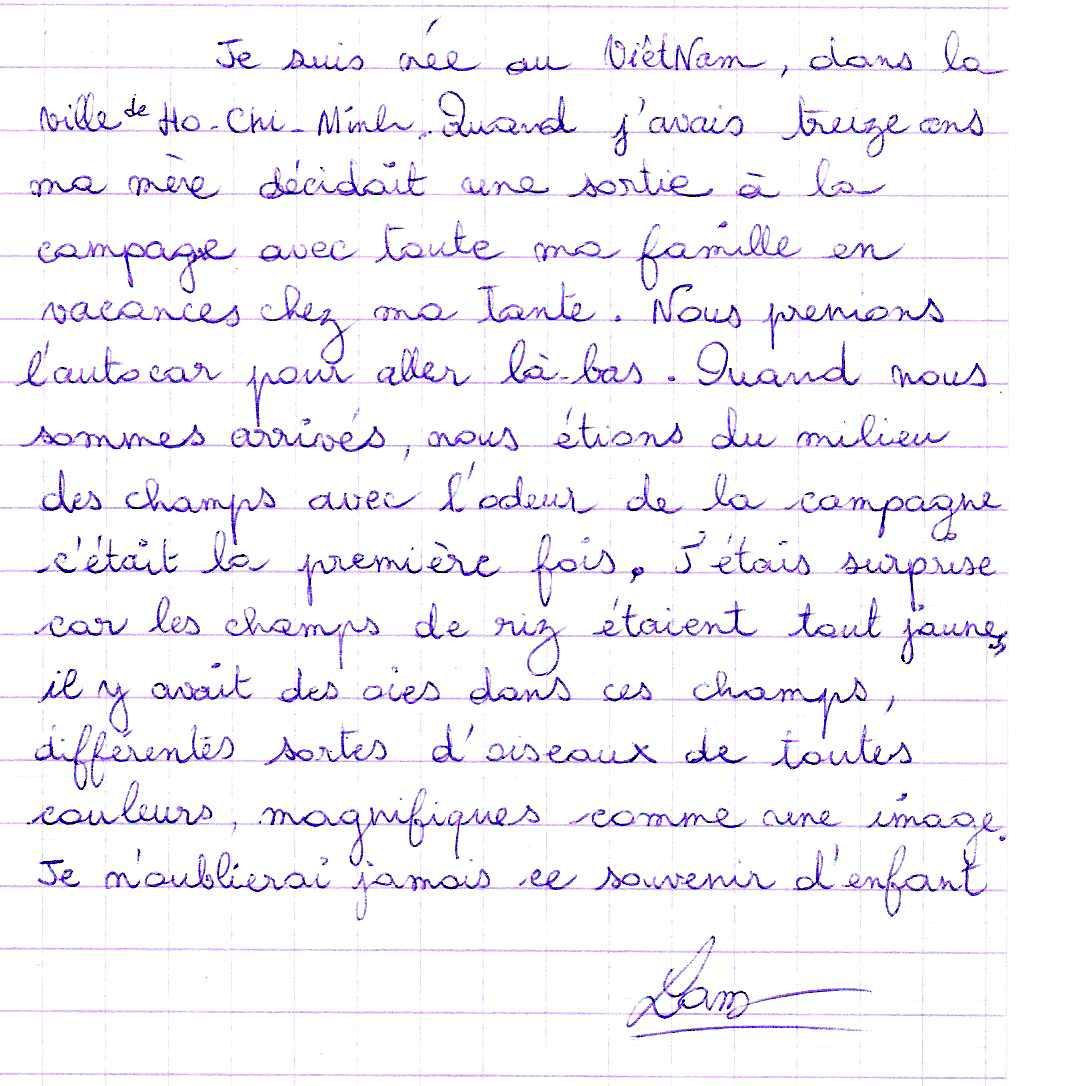 Je suis née au ViêtNam, dans la
ville de Ho-Chi-Minh. Quand j'avais treize ans
ma mère décidait une sortie à la
campage avec toute ma famille en
vacances chez ma Tante. Nous prenions
l'autocar pour aller là-bas. Quand nous
sommes arrivés, nous étions du milieu
des champs avec l'odeur de la campagne
c'était la première fois. J'étais surprise
car les champs de riz étaient tout jaunes,
il y avait des oies dans ces champs,
différentes sortes d'oiseaux de toutes
couleurs, magnifiques comme une image.
Je n'oublierai jamais ce souvenir d'enfant
Lam